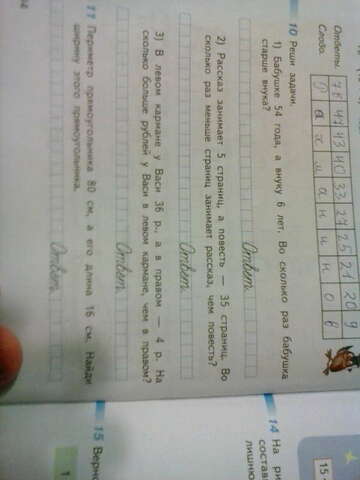 Ответы. 78 47 43 40 33 27 25 21 20 9
Слово. Р а х м а н и н о в
10 Реши задачи.
1) Бабушке 54 года, а внуку 6 лет. Во сколько раз бабушка
старше внука?
Ответ.
2) Рассказ занимает 5 страниц, а повесть — 35 страниц. Во
сколько раз меньше страниц занимает рассказ, чем повесть?
Ответ.
3) В левом кармане у Васи 36 р., а в правом — 4 р. На
сколько больше рублей у Васи в левом кармане, чем в правом?
Ответ.
11 Периметр прямоугольника 80 см, а его длина 16 см. Найди
ширину этого прямоугольника.
Ответ.
14 На ри
состав
лишню
15 Верно
1
15